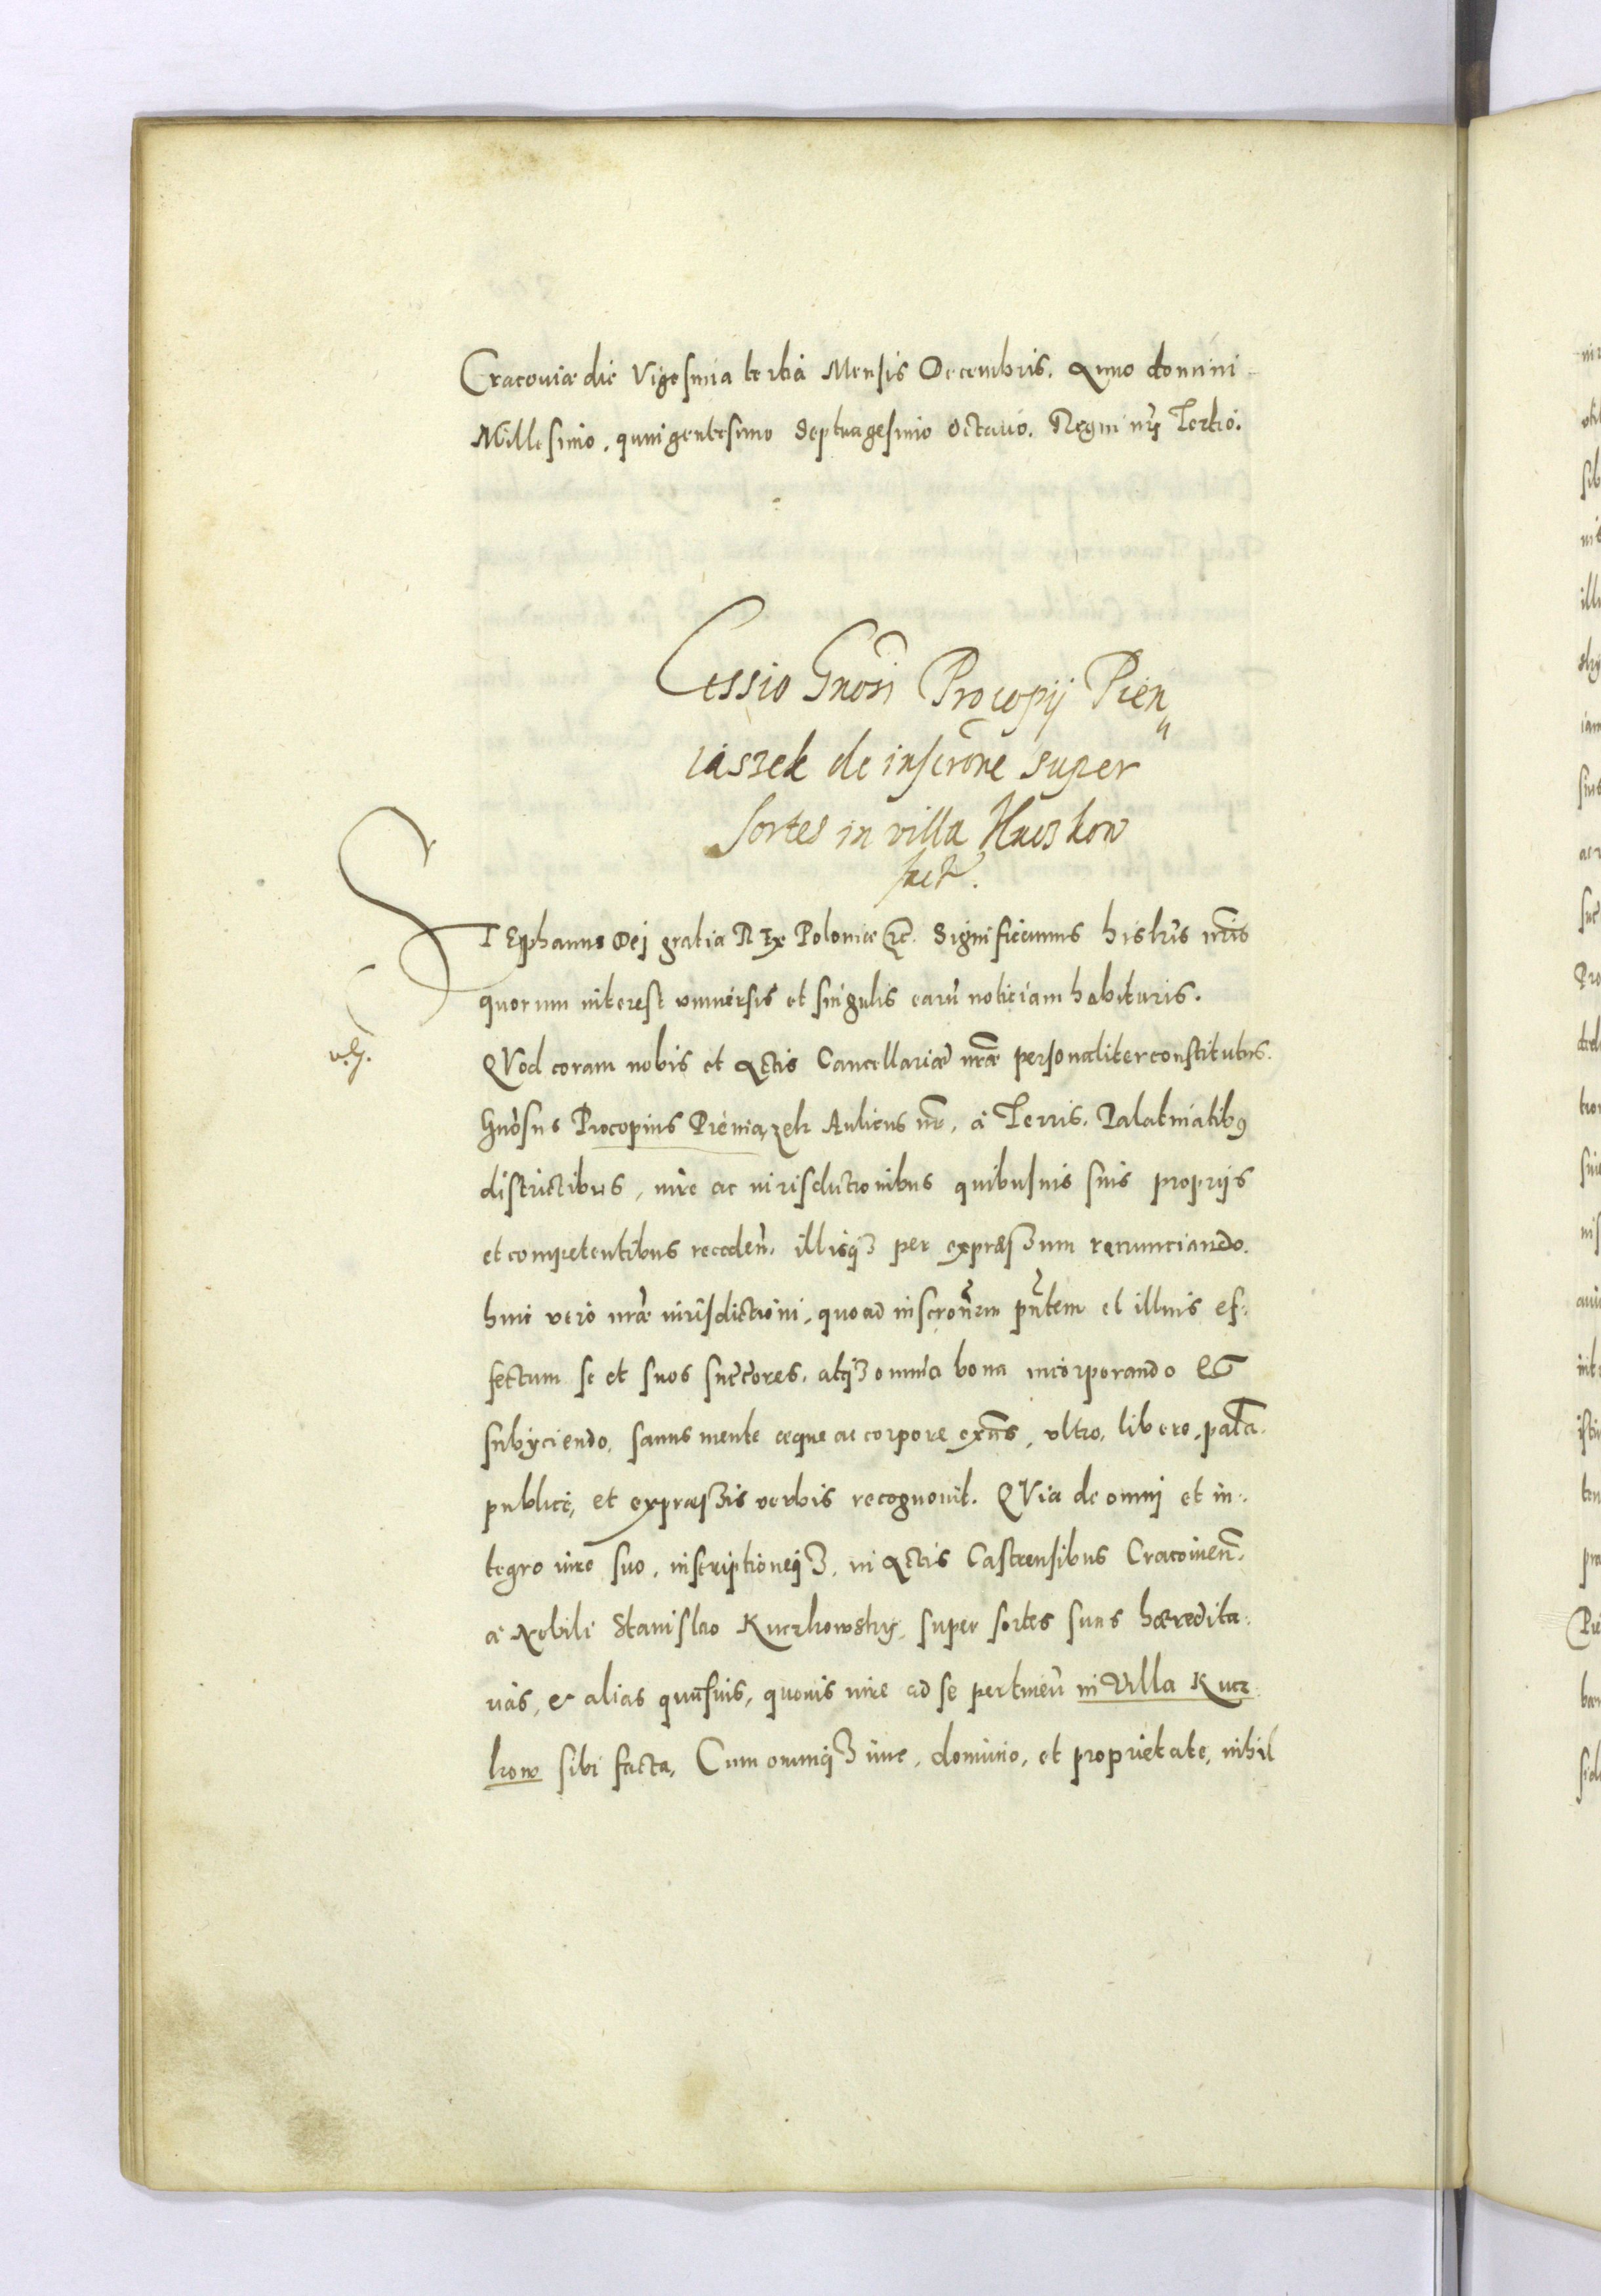 Cracouiæ die Vigesima tertia Mensis Decembris. Anno domini
Millesimo, quingentesimo Septuagesimo Octauo. Regni nrj Tertio.
Cessio Gnosi Procopij Pien„
iaszek de inscrone super
sortes in villa Kuczkow
fact.
STEphanus Dej gratia REx Poloniæ etc. Significamus his lris nris
quorum interest vniuersis et singulis earu noticiam habituris.
QVod coram nobis et Actis Cancellariæ nræ personaliter constitutus.
Gnosus Procopius Pieniązek Aulicus nr, à Terris. Palatinatibus
districtibus, iure ac iurisdictionibus quibusuis suis proprijs
et competentibus receden. illisq3 per expræssum renunciando.
huic vero nræ iurisdictioni, quoad inscronem pntem et illius ef-
fectum se et suos succores. atq3 omnia bona incorporando ET
subijciendo, sanus mente æque ac corpore exns, vltro, libere, pala.
publicè, et expræssis verbis recognouit. QVia de omnj et in-
tegro iure suo, inscriptioneq3, in Actis Castrensibus Cracouien.
à Nobili Stanislao Kuczkowsky, super sortes suas hæredita-
rias, et alias quasuis, quouis iure ad se pertinen in Villa Kucz
kow sibi facta, Cum omniq3 iure, dominio, et proprietate, nihil